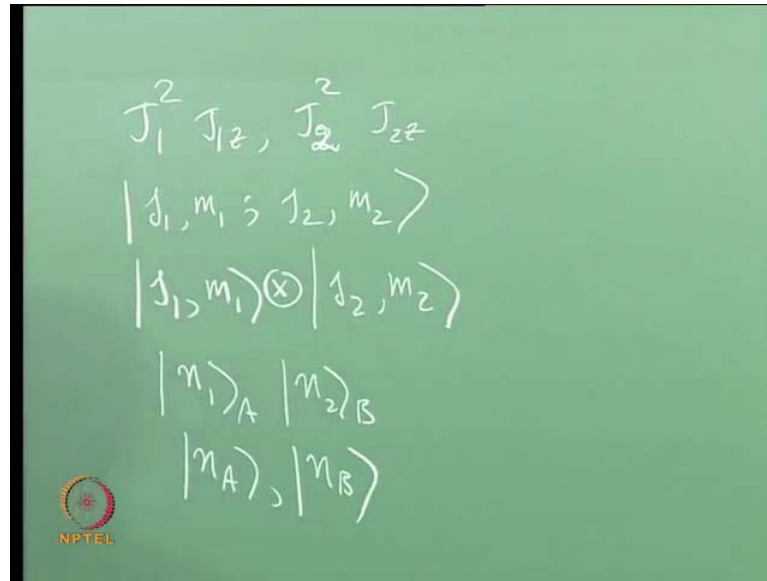 J₁² J₁z, J₂² J₂z
|j₁, m₁ ; j₂, m₂⟩
|j₁, m₁⟩⊗|j₂, m₂⟩
|n₁⟩A |n₂⟩B
|nA⟩, |nB⟩
NPTEL